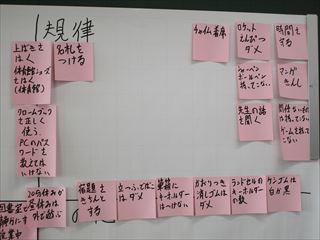 規律
上ばきを
はく
体育館シューズ
をはく
(体育館)
名札を
つける
チャイム着席
ロケット
えんぴつ
ダメ
時間を
守る
シャーペン
ボールペン
持ってこない
マンガ
きん
先生の話
を聞く
関係ない物は
持ってこない
ゲームも持って
こない
クロームブック
を正しく
使う
PCのパス
ワードを
教えては
いけない
図書室で
静かにす
授業中
20分休みか
昼休みは
外で遊ぶ
宿題を
きちんと
する
立つふでばこ
はダメ
筆箱に
キーホルダー
はつけない
かおりつき
消しゴムは
ダメ
ランドセルの
キーホルダー
の数
ケシゴムは
白か黒